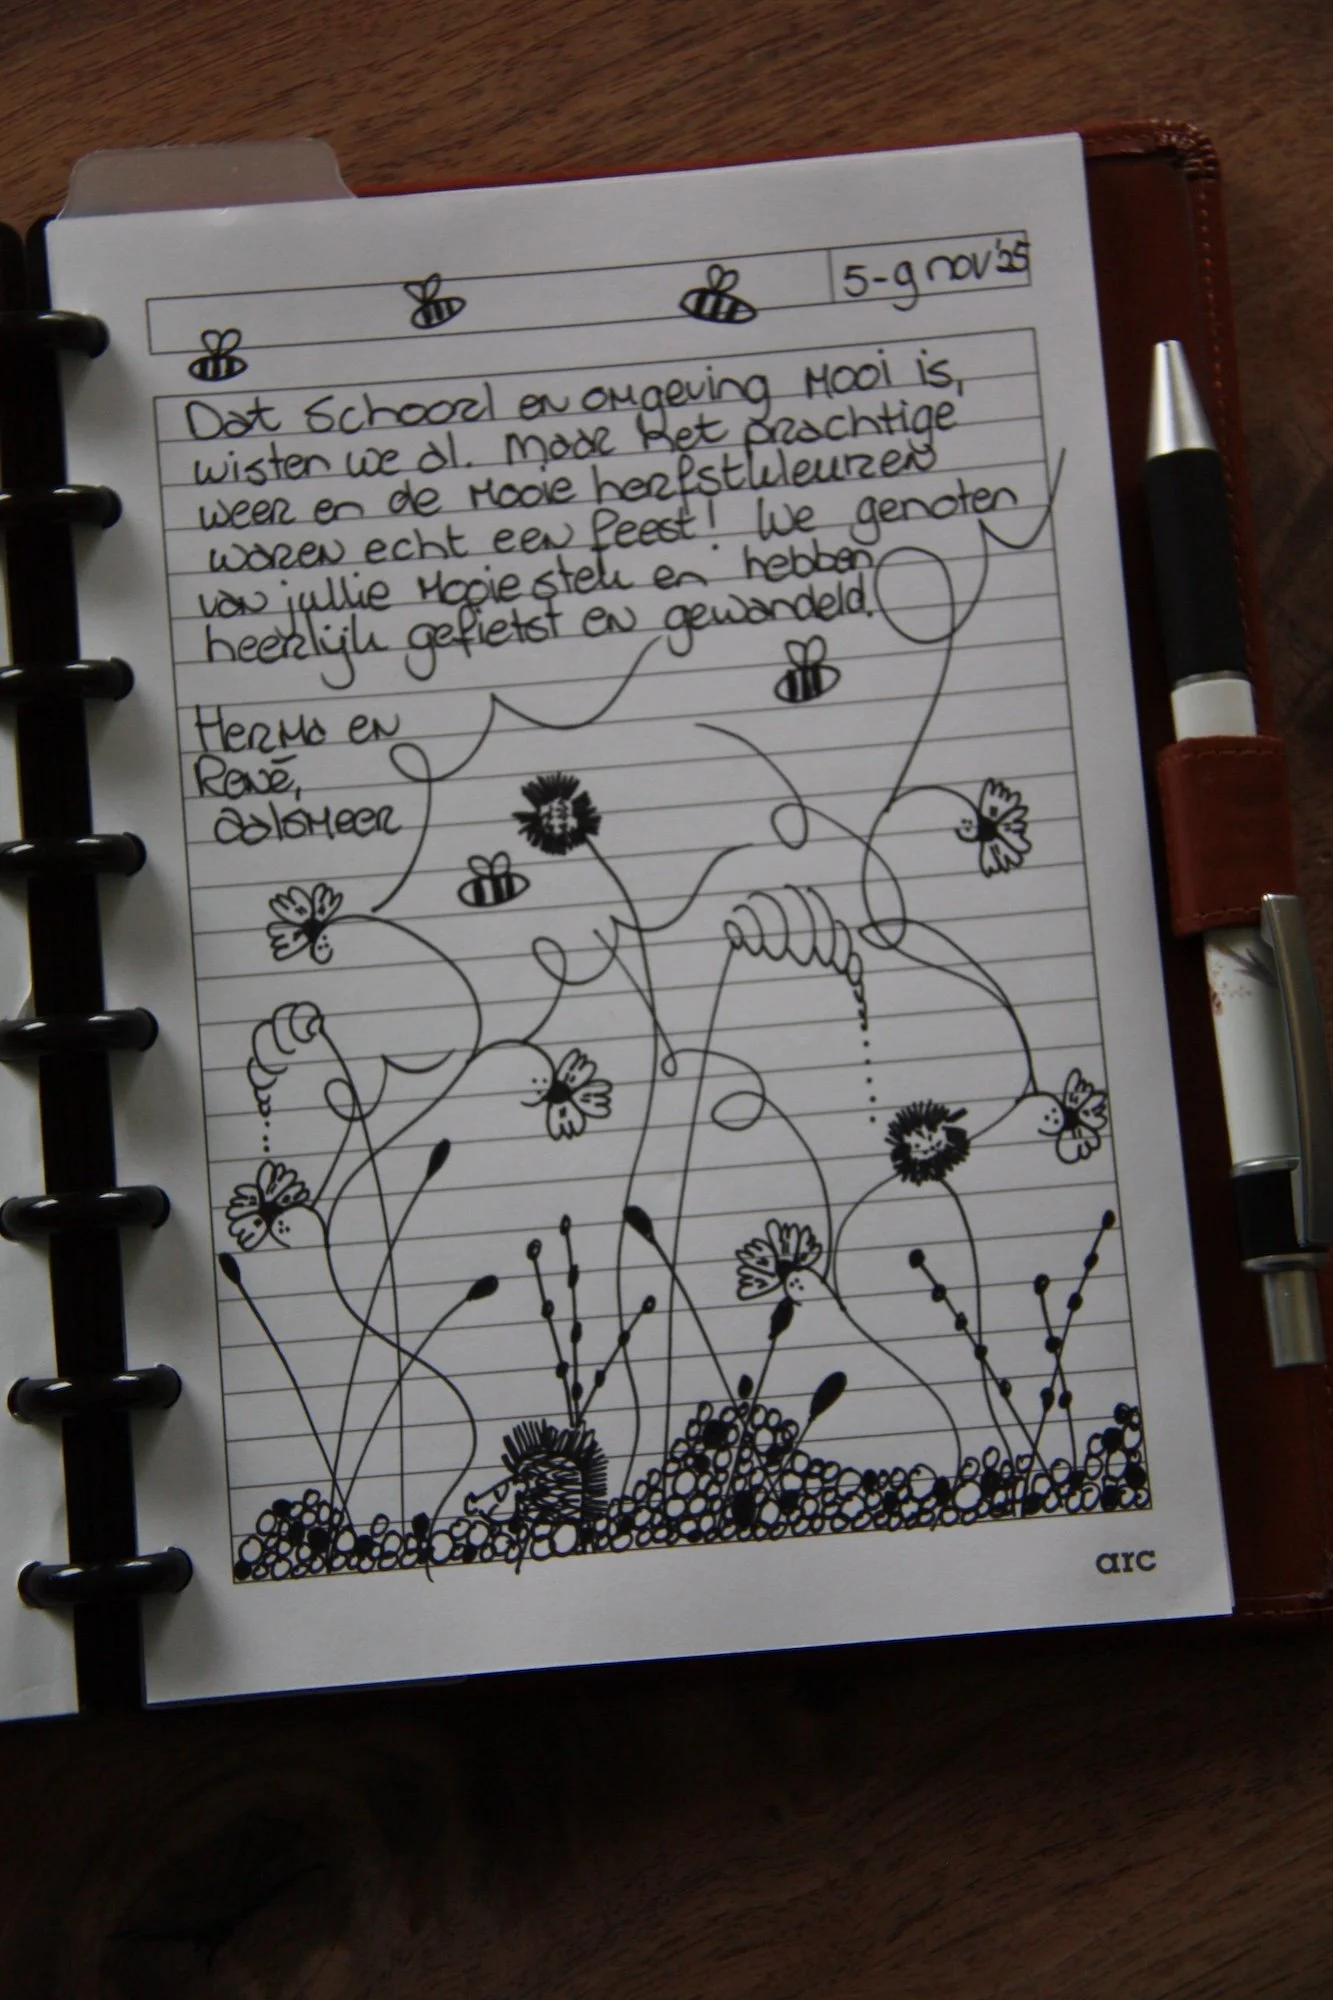 5-9 nov '25
Dat Schoorl en omgeving mooi is,
wisten we al. Maar het prachtige
weer en de mooie herfstkleuren
waren echt een feest! We genoten
van jullie mooie stek en hebben
heerlijk gefietst en gewandeld.
Herma en
René,
Aalsmeer
arc